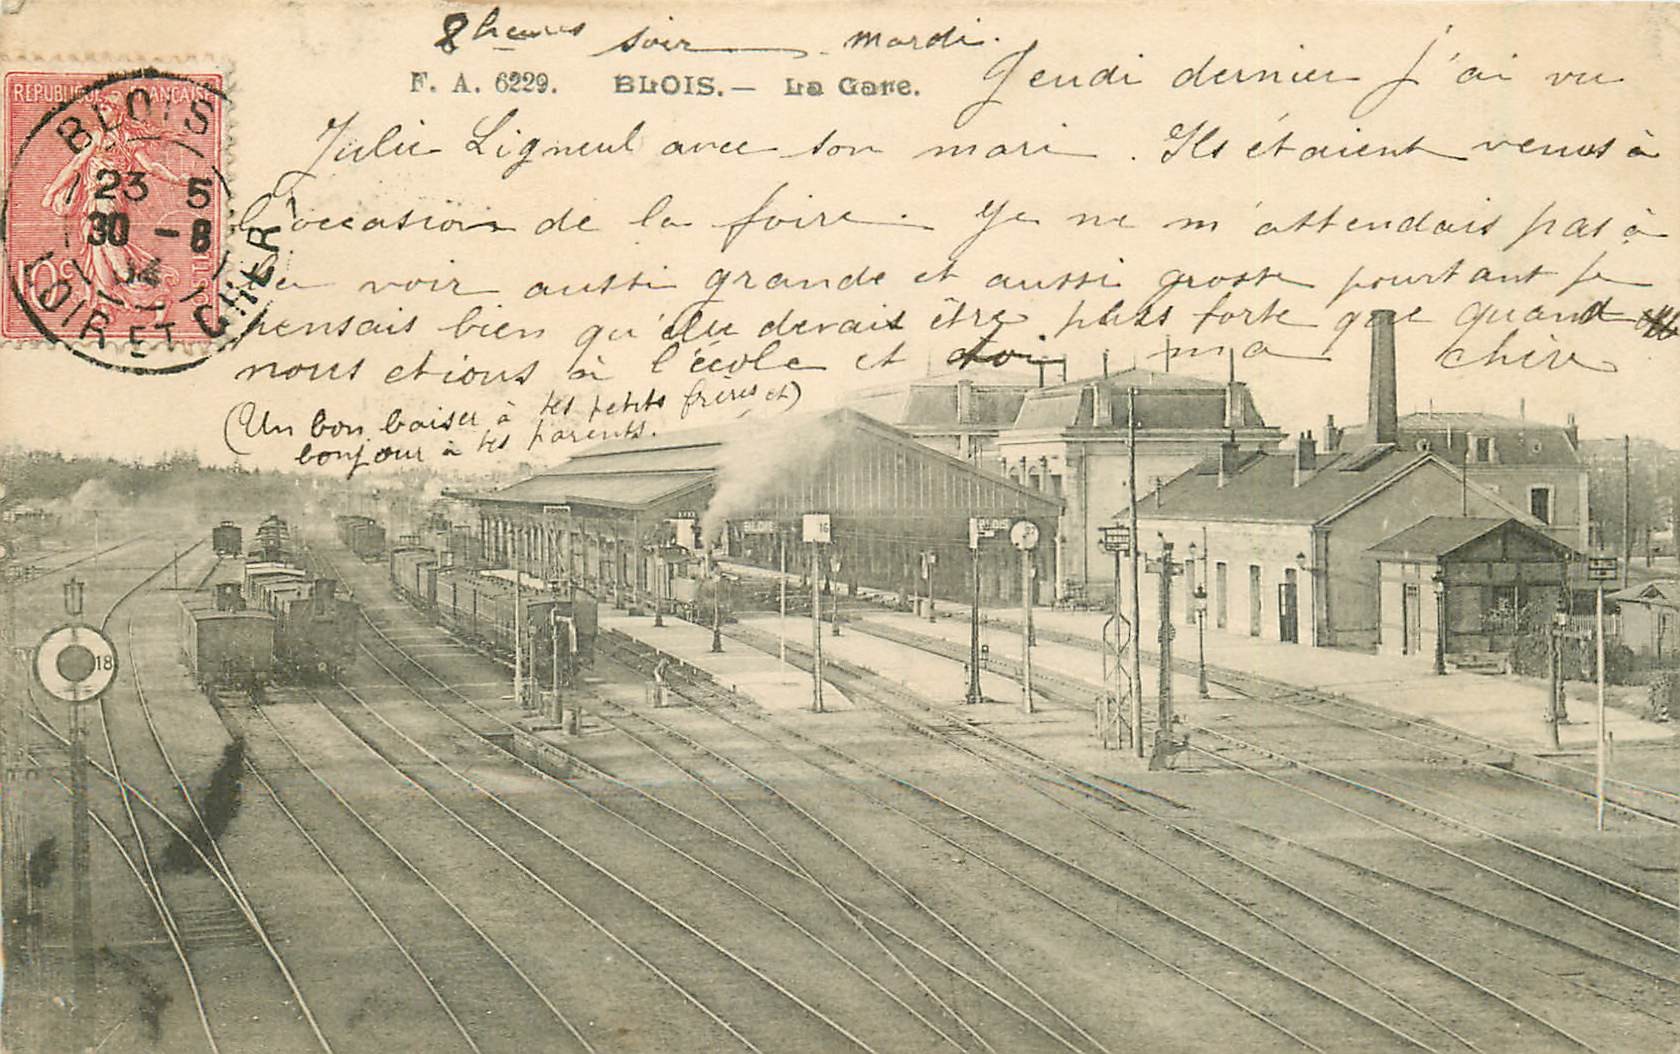 8 heures soir mardi.
F. A. 6229. BLOIS. — La Gare.
Jeudi dernier j'ai vu
Julie Ligneul avec son mari. Ils étaient venus à
l'occasion de la foire. Je ne m'attendais pas à
la voir aussi grande et aussi grosse pourtant je
pensais bien qu'elle devait être plus forte que quand
nous etions à l'école et toi ma chère
(Un bon baiser à tes petits frères et)
bonjour à tes parents.
REPUBLIQUE FRANÇAISE
10c
POSTES
BLOIS
23 5
30 -8
04
LOIR ET CHER
BLOIS
16
BLOIS
18